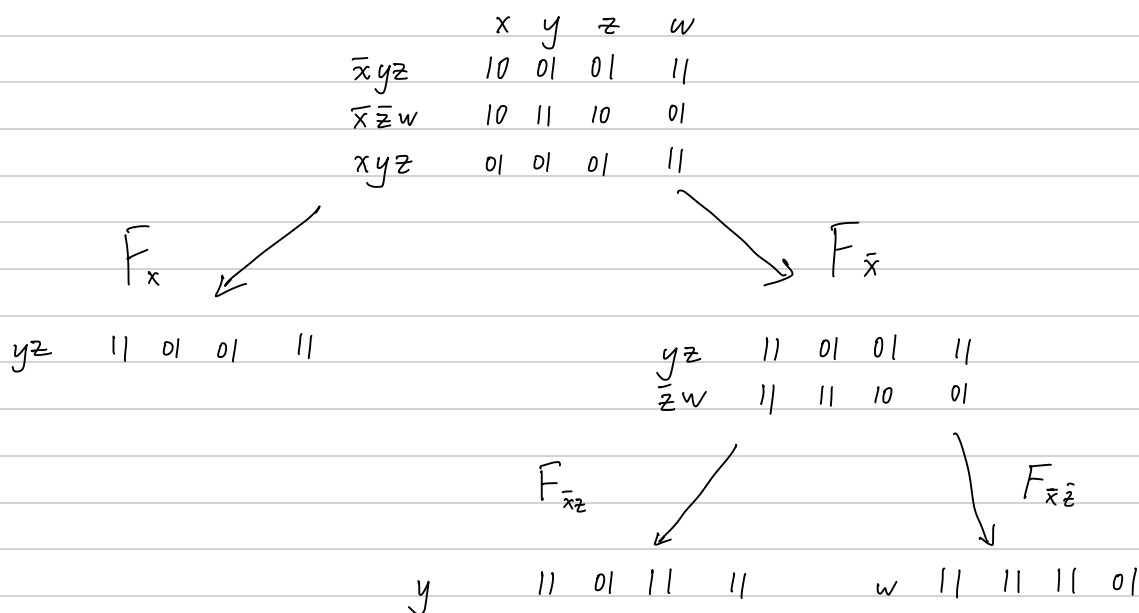 x y z w
x̄yz 10 01 01 11
x̄z̄w 10 11 10 01
xyz 01 01 01 11
Fx Fx̄
yz 11 01 01 11
yz 11 01 01 11
z̄w 11 11 10 01
Fx̄z Fx̄z̄
y 11 01 11 11 w 11 11 11 01